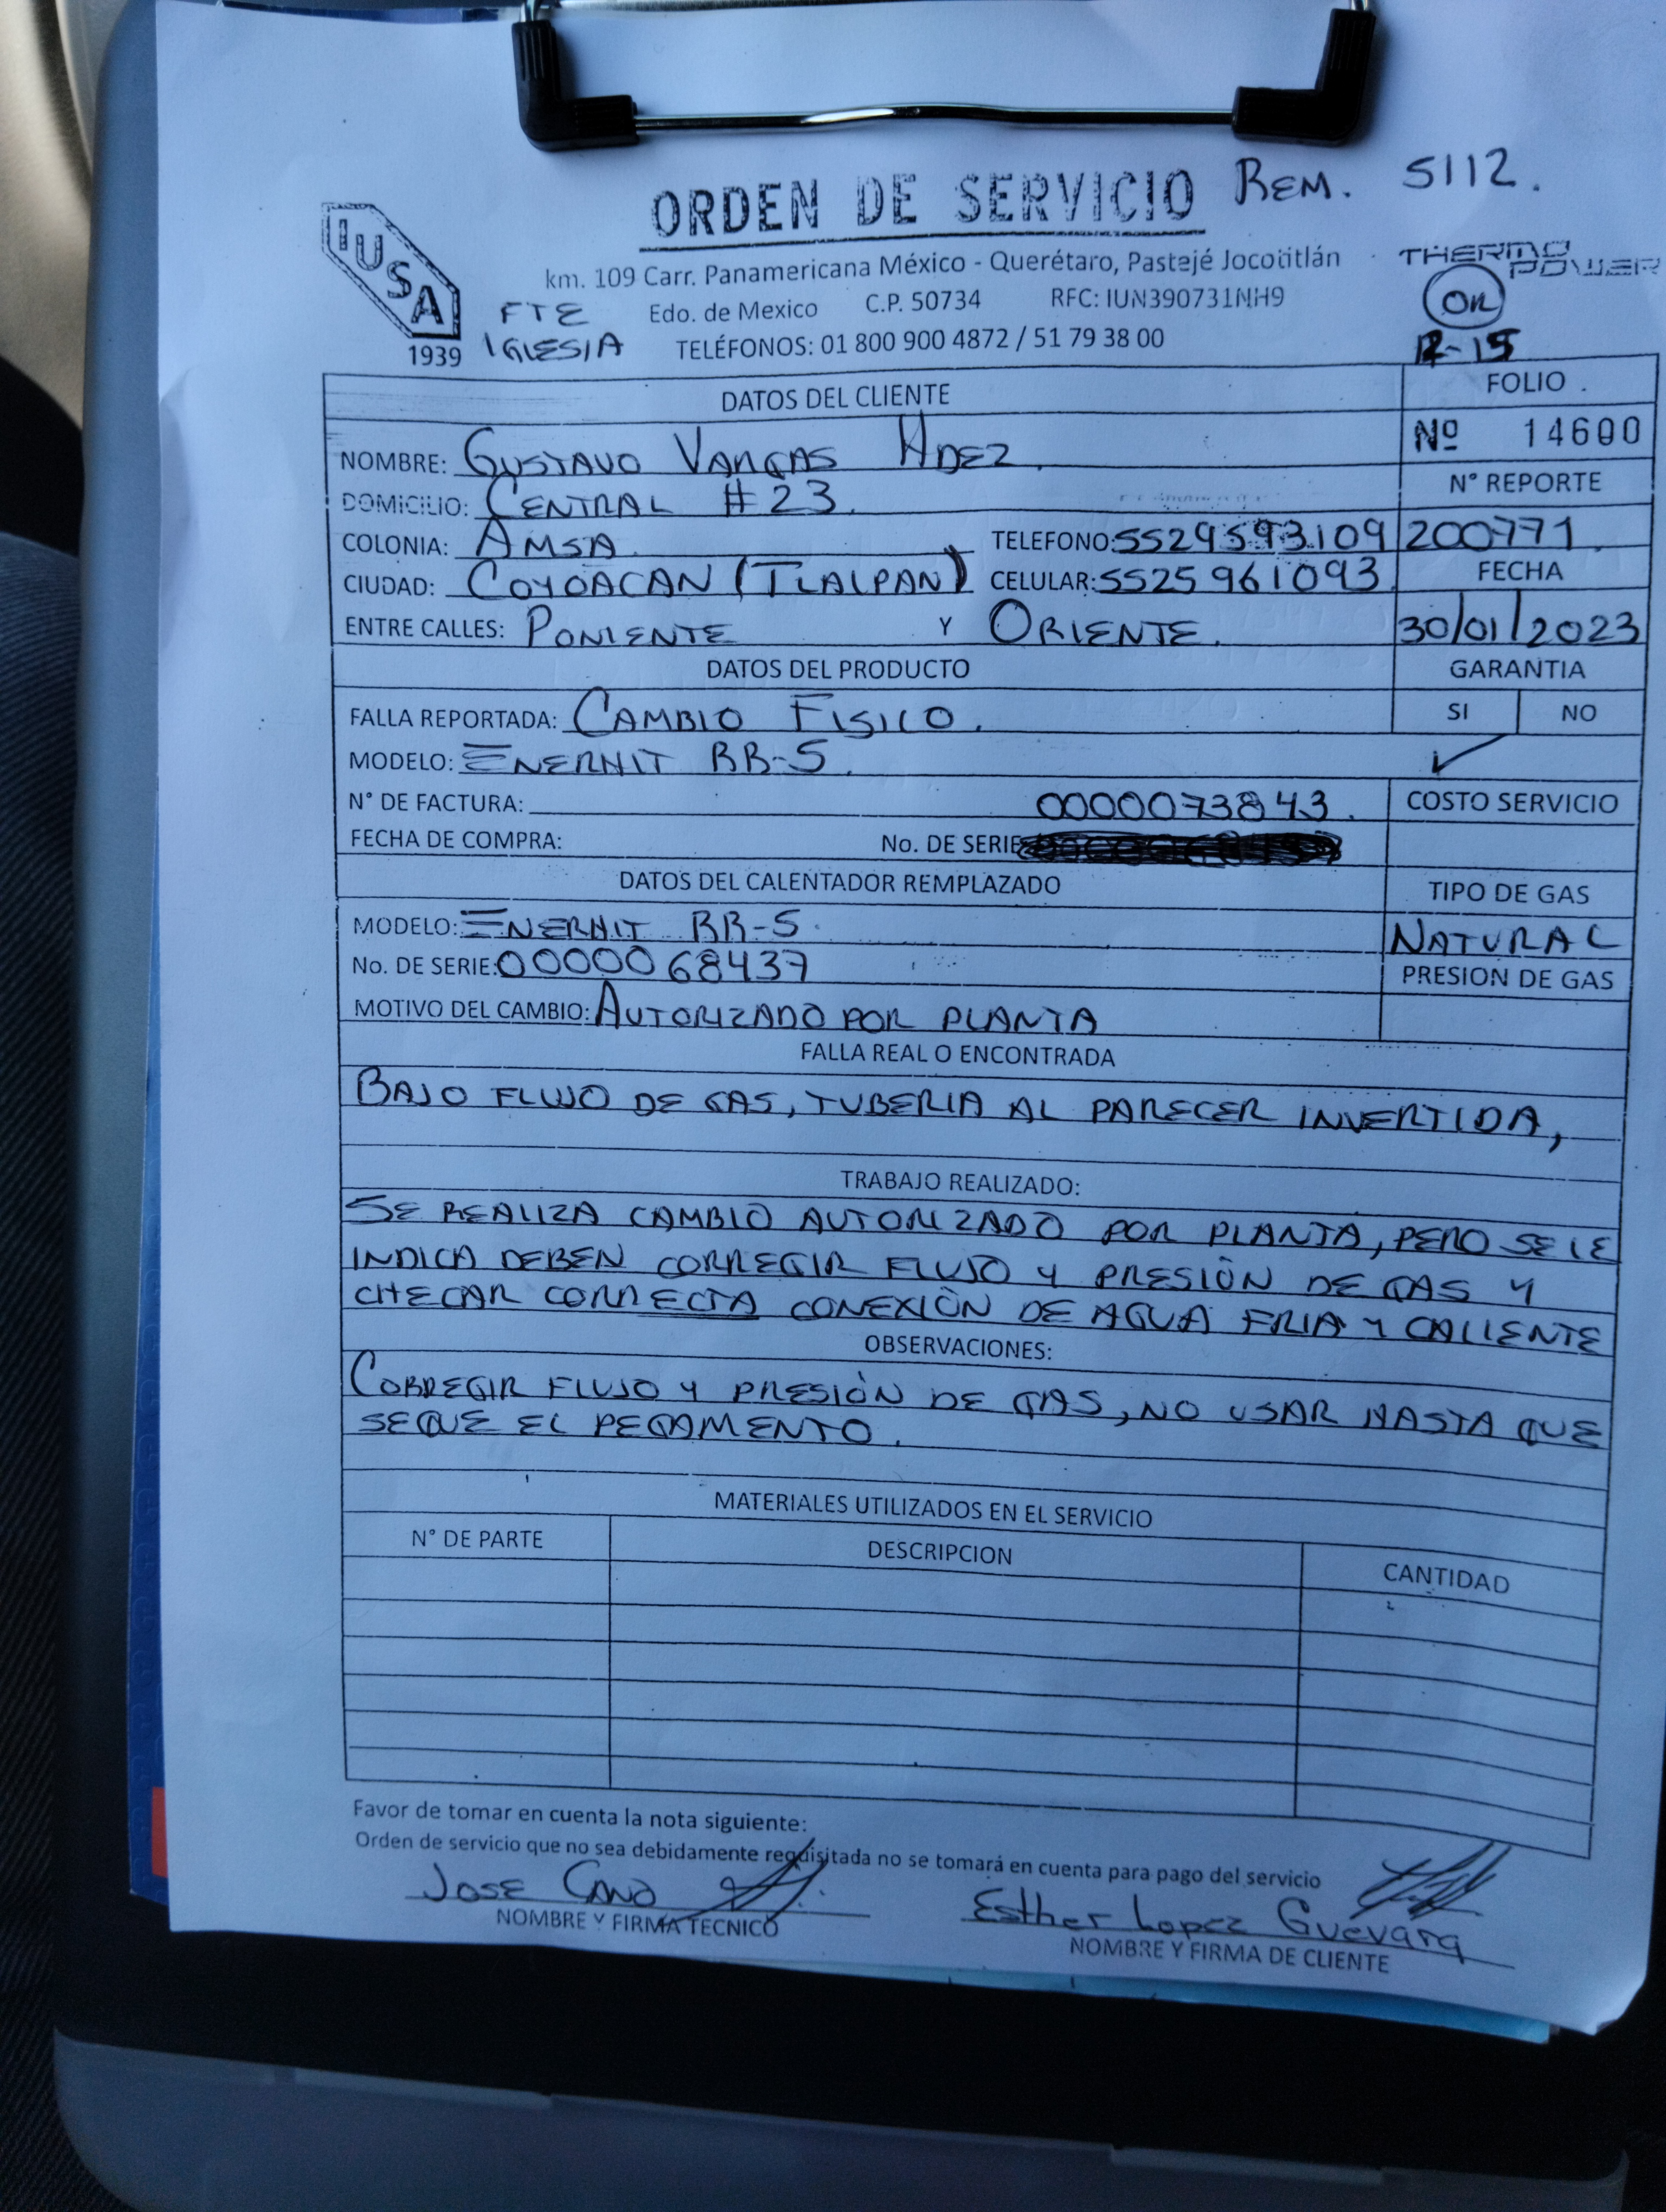 ORDEN DE SERVICIO REM. 5112.
IUSA
1939
THERMO POWER
km. 109 Carr. Panamericana México - Querétaro, Pastejé Jocotitlán
Edo. de Mexico C.P. 50734 RFC: IUN390731NH9
FTE
IGLESIA
TELÉFONOS: 01 800 900 4872 / 51 79 38 00
OK
12-15
DATOS DEL CLIENTE
FOLIO
Nº 14600
NOMBRE: GUSTAVO VARGAS HDEZ.
Nº REPORTE
DOMICILIO: CENTRAL #23.
COLONIA: AMSA TELEFONO: 5529593109 200771.
CIUDAD: COYOACAN (TLALPAN) CELULAR: 5525961093 FECHA
ENTRE CALLES: PONIENTE Y ORIENTE. 30/01/2023
DATOS DEL PRODUCTO GARANTIA
FALLA REPORTADA: CAMBIO FISICO. SI NO
MODELO: ENERHIT BB-S. ✓
N° DE FACTURA: 0000073843. COSTO SERVICIO
FECHA DE COMPRA: No. DE SERIE
DATOS DEL CALENTADOR REMPLAZADO TIPO DE GAS
MODELO: ENERHIT BB-S. NATURAL
No. DE SERIE: 0000068437 PRESION DE GAS
MOTIVO DEL CAMBIO: AUTORIZADO POR PLANTA
FALLA REAL O ENCONTRADA
BAJO FLUJO DE GAS, TUBERIA AL PARECER INVERTIDA,
TRABAJO REALIZADO:
SE REALIZA CAMBIO AUTORIZADO POR PLANTA, PERO SE LE
INDICA DEBEN CORREGIR FLUJO Y PRESIÓN DE GAS Y
CHECAR CORRECTA CONEXIÓN DE AGUA FRIA Y CALIENTE
OBSERVACIONES:
CORREGIR FLUJO Y PRESIÓN DE GAS, NO USAR HASTA QUE
SEQUE EL PEGAMENTO.
MATERIALES UTILIZADOS EN EL SERVICIO
N° DE PARTE DESCRIPCION CANTIDAD
Favor de tomar en cuenta la nota siguiente:
Orden de servicio que no sea debidamente requisitada no se tomará en cuenta para pago del servicio
JOSE CANO Esther Lopez Guevara
NOMBRE Y FIRMA TECNICO NOMBRE Y FIRMA DE CLIENTE